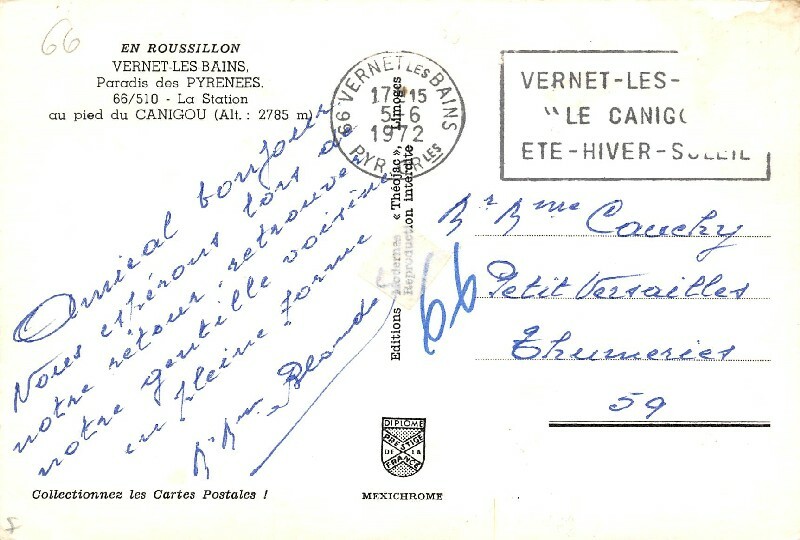 66
EN ROUSSILLON
VERNET-LES BAINS,
Paradis des PYRENEES.
66/510 - La Station
au pied du CANIGOU (Alt. : 2785 m)
Amical bonjour
Nous espérons lors de
notre retour retrouver
notre gentille voisine
en pleine forme
Mr Mme Blondel
Collectionnez les Cartes Postales !
66 VERNET LES BAINS
17H15
5-6
1972
PYR ORLES
VERNET-LES-
"LE CANIGO
ETE-HIVER-SOLEIL
Editions Modernes « Théojac », Limoges
Reproduction interdite
66
Mr Mme Cauchy
Petit Versailles
Thumeries
59
DIPLOME
PRESTIGE
DE LA
FRANCE
MEXICHROME